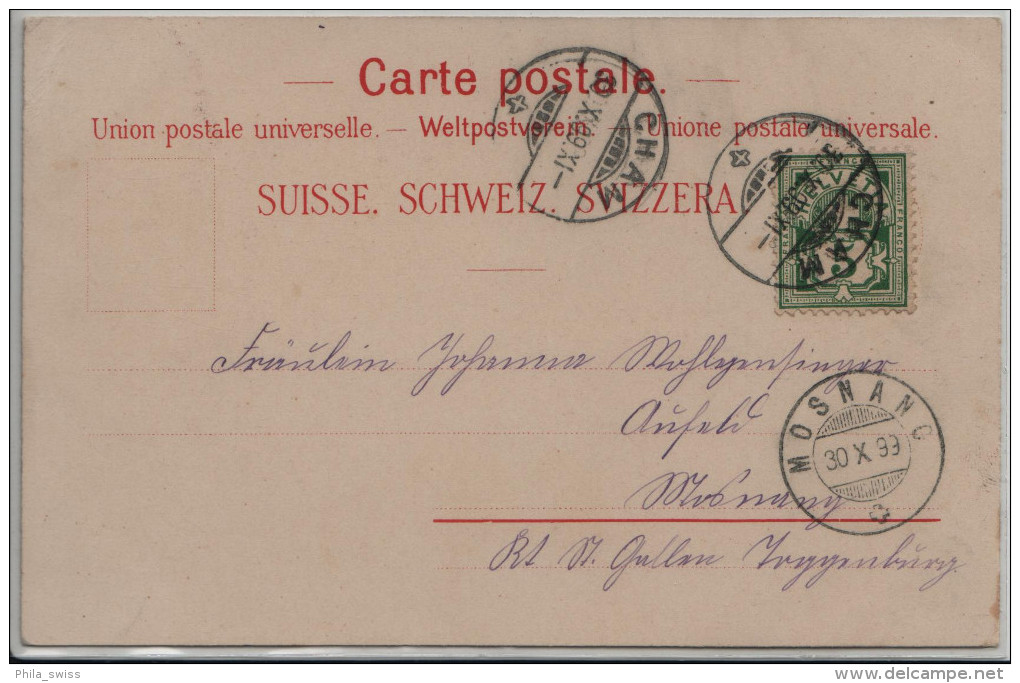 Carte postale.
Union postale universelle. — Weltpostverein — Unione postale universale.
SUISSE. SCHWEIZ. SVIZZERA.
CHAM
CHAM
HELVETIA
FRANCO
5
Fräulein Johanna Wohlgensinger
Aufeld
Mosnang
Kt St. Gallen Toggenburg.
MOSNANG
30 X 99
Phila_swiss
delcampe.net